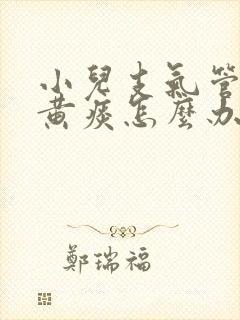 小兒支氣管
黄痰怎麼办
鄭瑞福